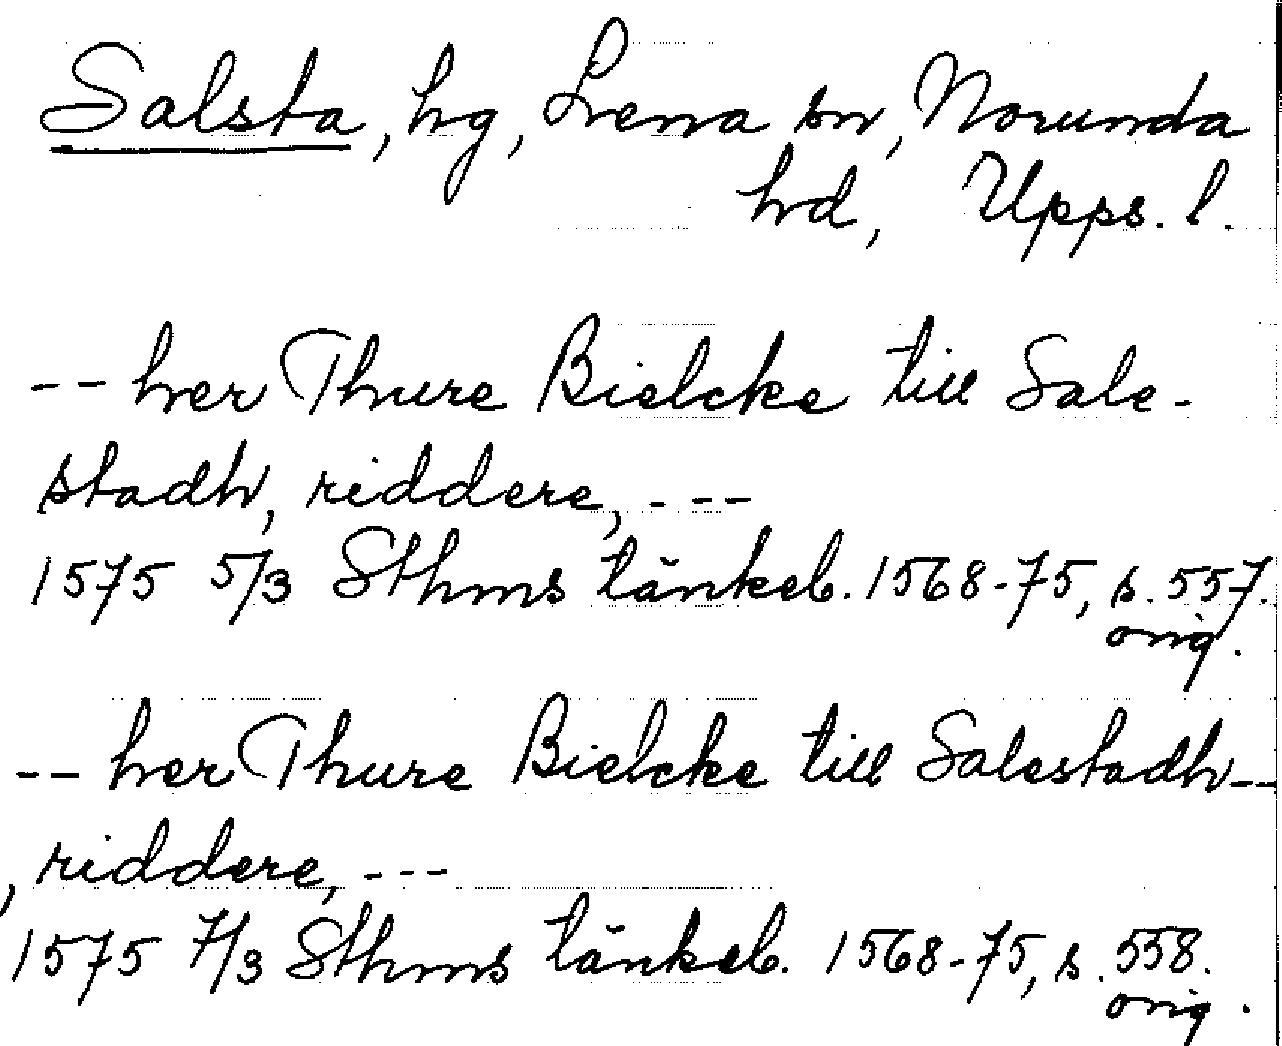 Salsta, hg, Lena sn, Norunda
hd, Upps. l.
-- her Thure Bielcke till Sale-
stadh, riddere, ---
1575 5/3 Sthms tänkeb. 1568-75, s. 557.
orig.
-- her Thure Bielcke till Salestadh--
, riddere, ---
1575 7/3 Sthms tänkeb. 1568-75, s. 558.
orig.